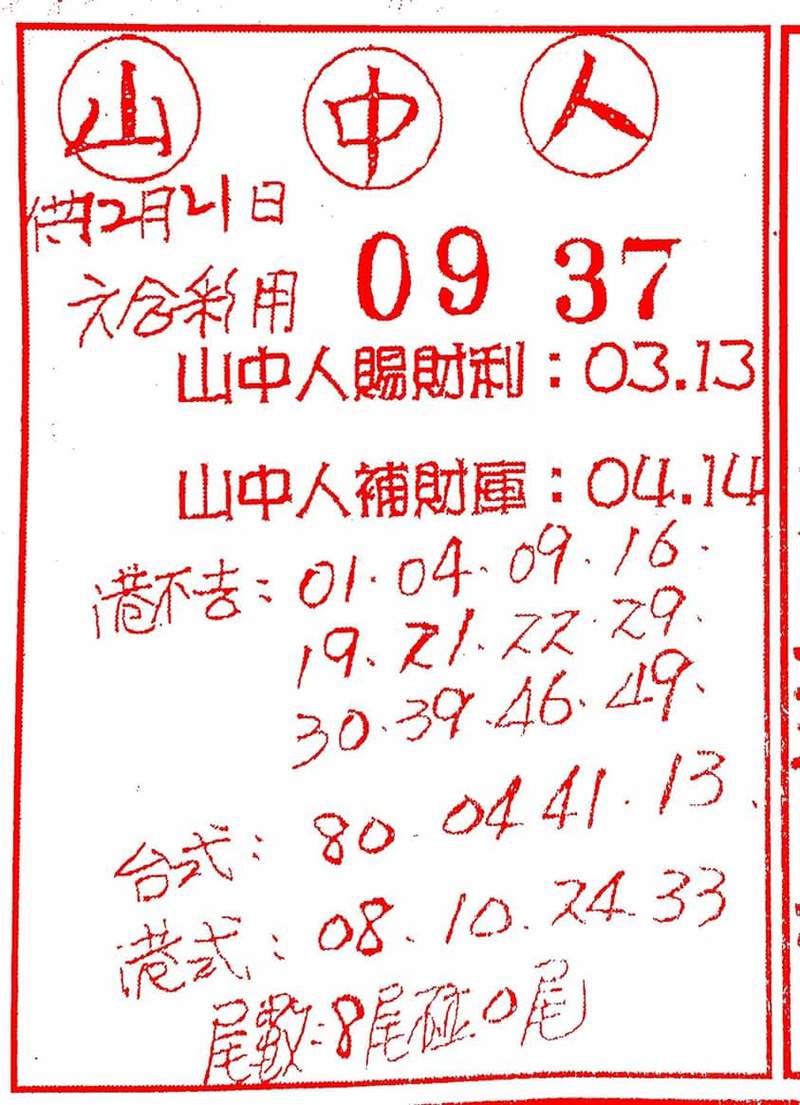 山 中 人
供2月21日
六合彩用 09 37
山中人賜財利：03.13
山中人補財庫：04.14
港不去：01.04.09.16.
19.21.22.29.
30.39.46.49.
台式：80.04 41.13.
港式：08.10.24.33
尾數：8尾碰0尾